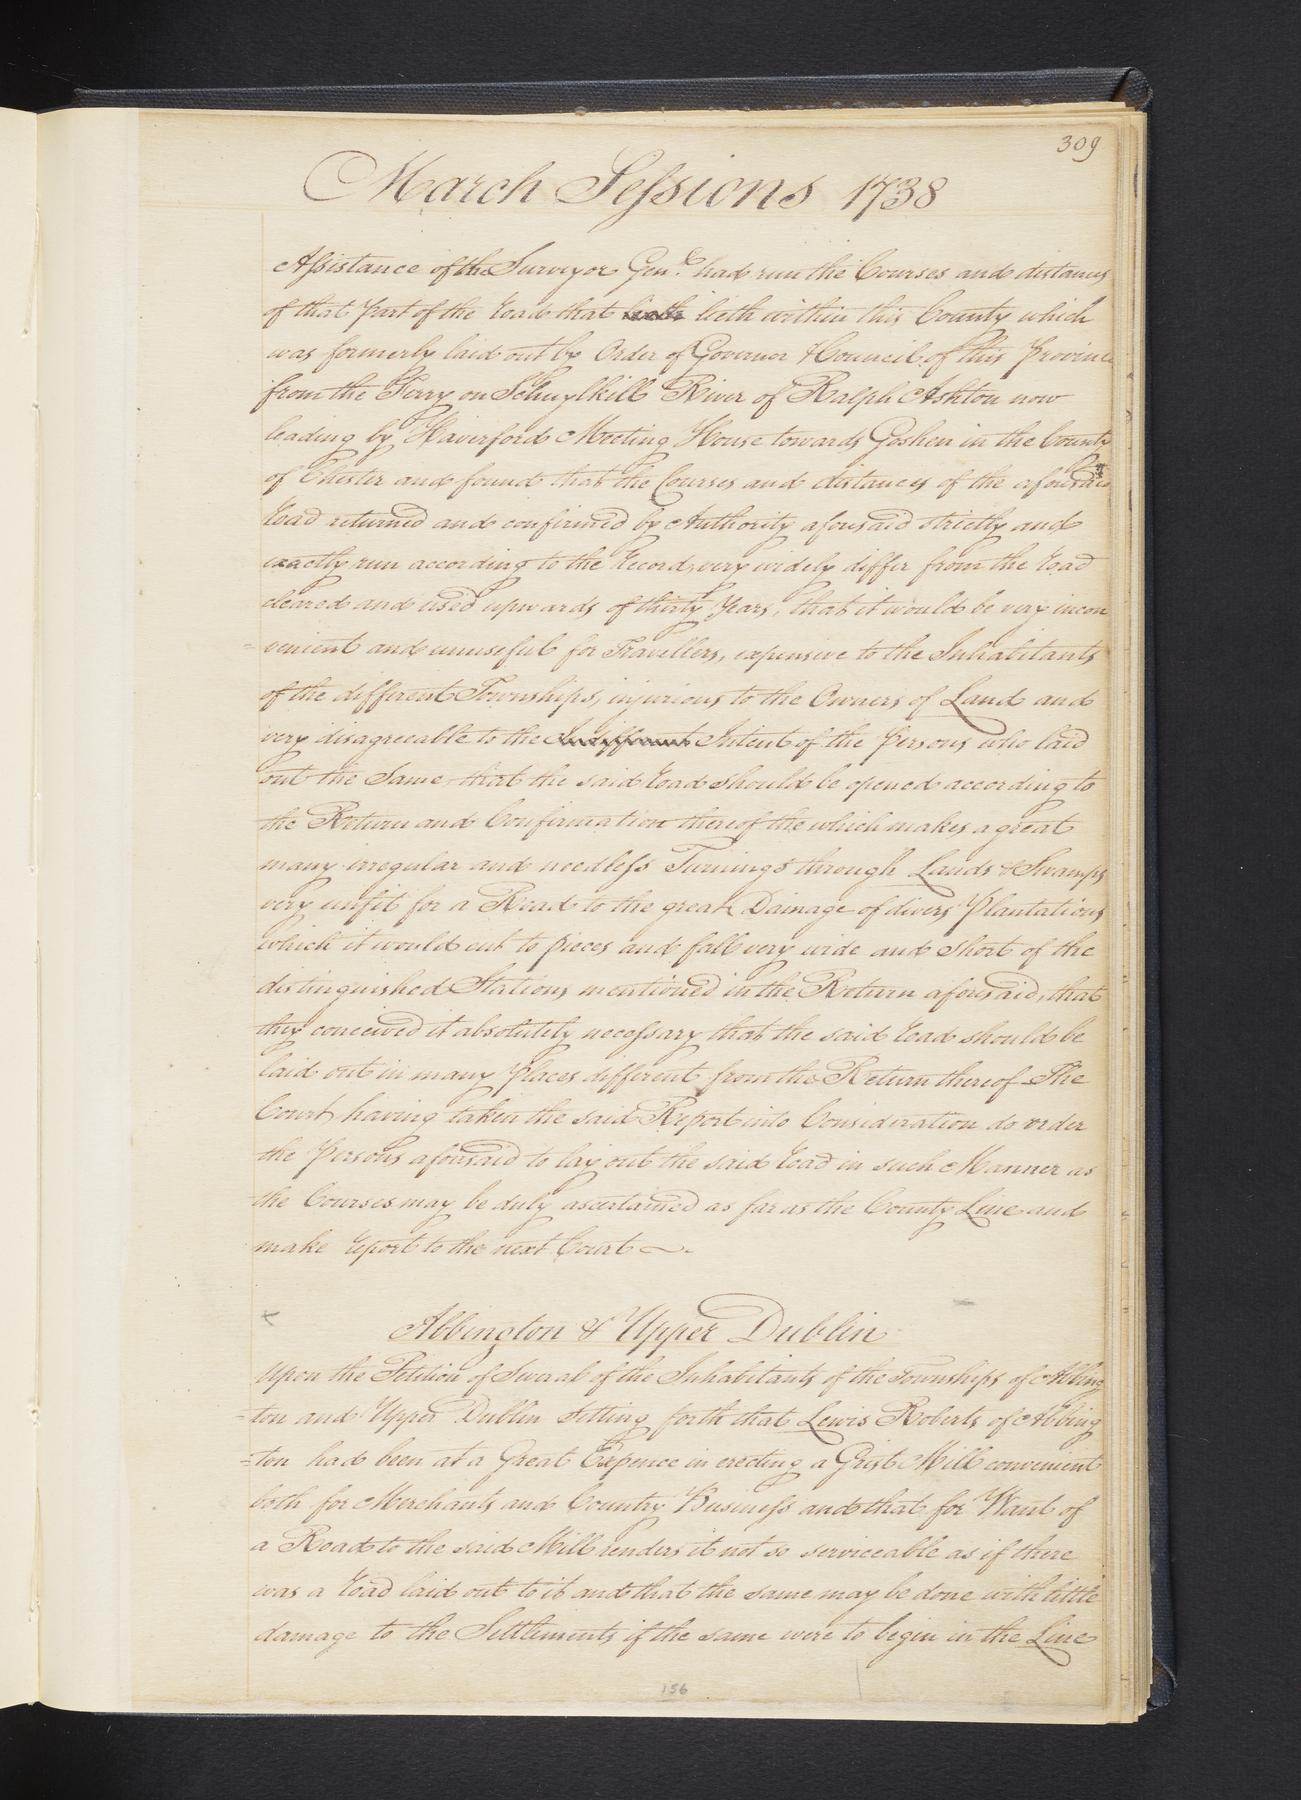 309
March Sessions 1738
Assistance of the Surveyor Genl. had run the Courses and distances
of that Part of the Road that lieth within this County which
was formerly laid out by Order of Governor & Council of this Province
from the Ferry on Schuylkill River of Ralph Ashton now
leading by Haverford Meeting House towards Goshen in the County
of Chester and found that the Courses and distances of the aforesaid
Road returned and confirmed by Authority aforesaid strictly and
exactly run according to the Record, very widely differ from the Road
cleared and used upwards of thirty Years, that it would be very incon
=venient and unuseful for Travellers, expensive to the Inhabitants
of the different Townships, injurious to the Owners of Land and
very disagreeable to the Intent of the Persons who laid
out the Same, that the said Road should be opened according to
the Return and Confirmation thereof the which makes a great
many irregular and needless Turnings through Lands & Swamps
very unfit for a Road to the great Damage of divers Plantations
which it would cut to pieces and fall very wide and short of the
distinguished Stations mentioned in the Return aforesaid, that
they conceived it absolutely necessary that the said Road should be
laid out in many Places different from the Return thereof The
Court having taken the said Report into Consideration do order
the Persons aforesaid to lay out the said Road in such Manner as
the Courses may be duly ascertained as far as the County Line and
make report to the next Court
Abbington & Upper Dublin
Upon the Petition of Several of the Inhabitants of the Townships of Abbing
=ton and Upper Dublin setting forth that Lewis Roberts of Abbing
=ton had been at a Great Expence in erecting a Grist Mill convenient
both for Merchants and Country Business and that for Want of
a Road to the said Mill renders it not so serviceable as if there
was a Road laid out to it and that the same may be done with little
damage to the Settlements if the same were to begin in the Line
156